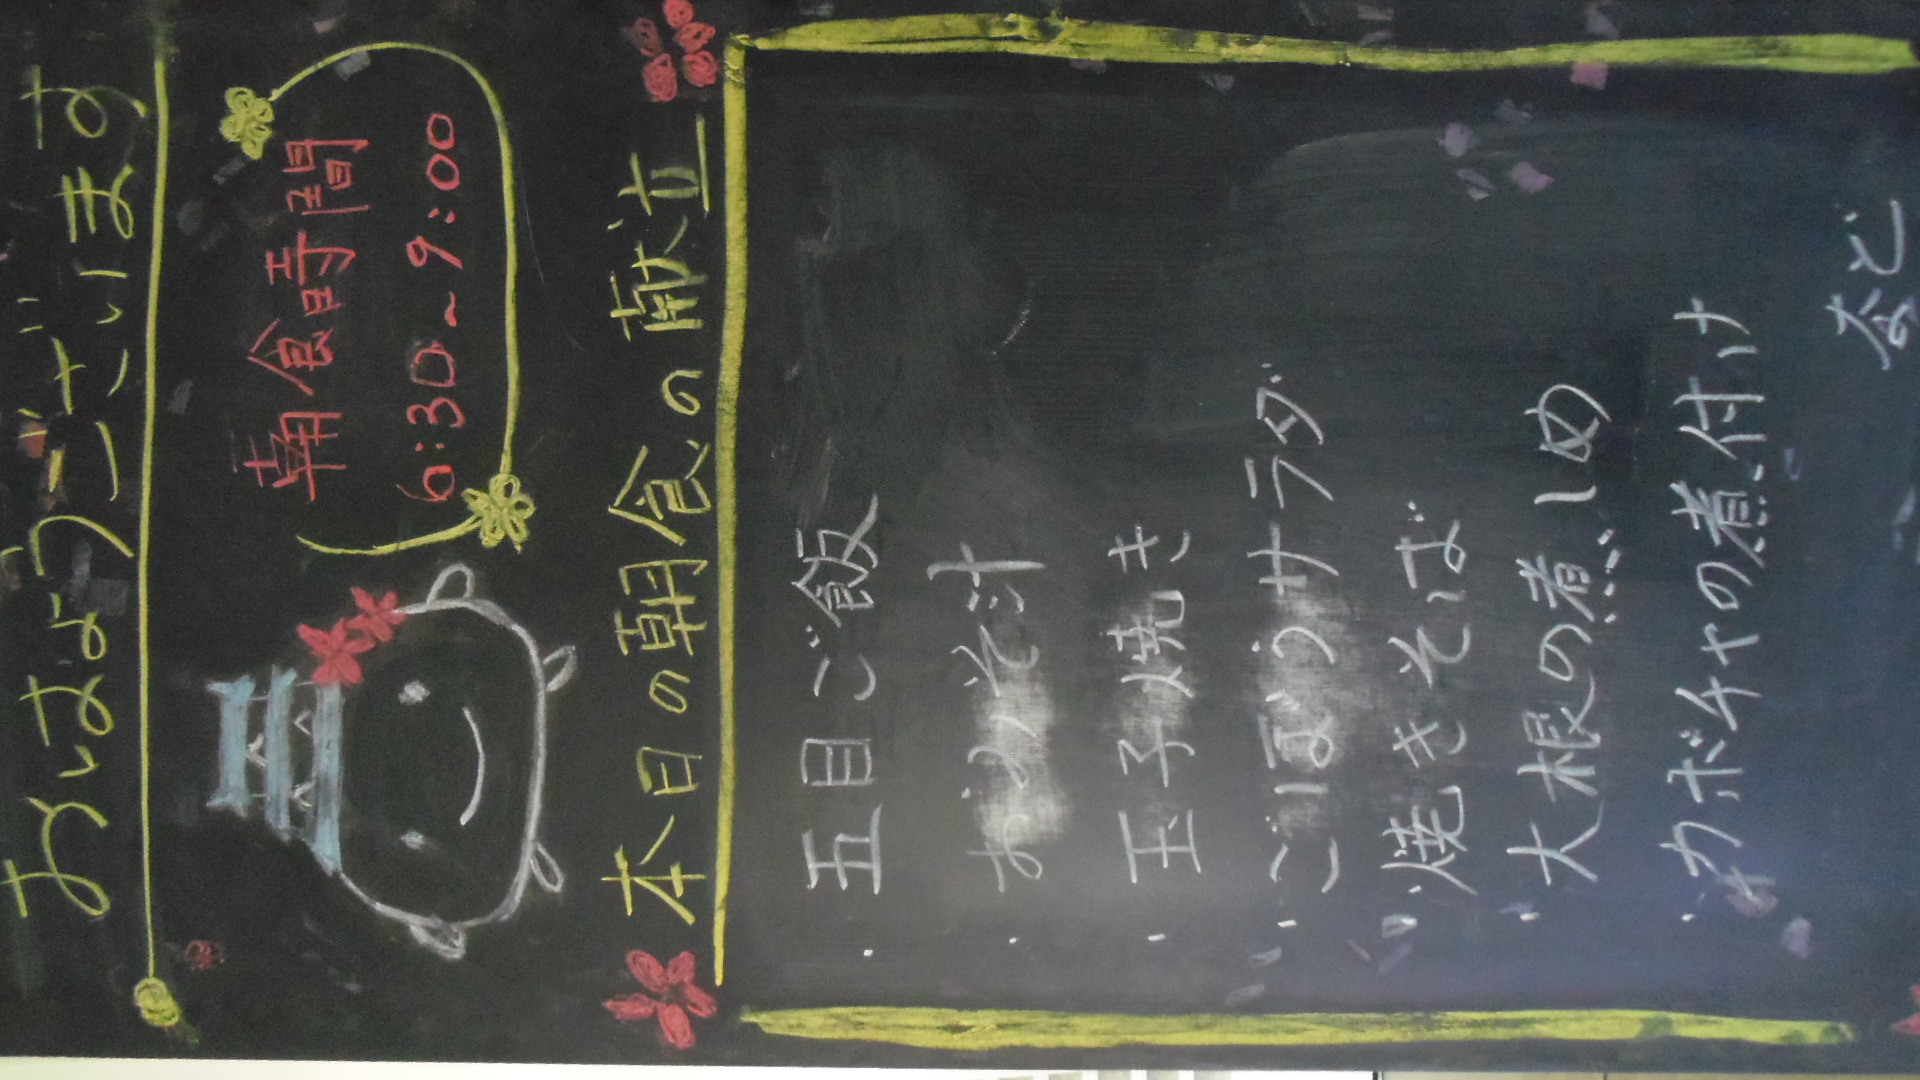 おはようございます
朝食時間
6:30~9:00
本日の朝食の献立
・五目ご飯
・おみそ汁
・玉子焼き
・ごぼうサラダ
・焼きそば
・大根の煮しめ
・カボチャの煮付け
など